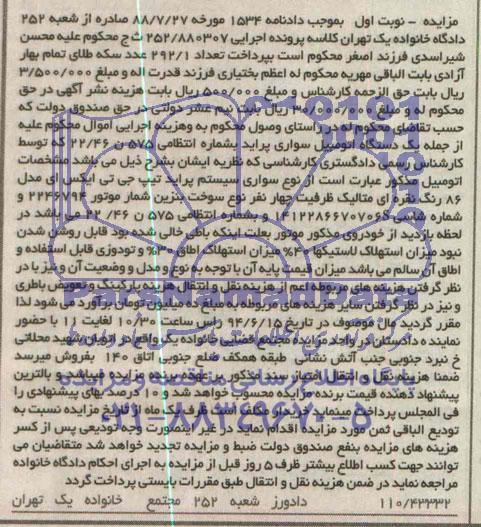 مزایده - نوبت اول بموجب دادنامه 1534 مورخه 88/7/27 صادره از شعبه 252
دادگاه خانواده یک تهران کلاسه پرونده اجرایی 252/880307 ث ج محکوم علیه محسن
شیراسدی فرزند اصغر محکوم است بپرداخت تعداد 292/1 عدد سکه طلای تمام بهار
آزادی بابت الباقی مهریه محکوم له اعظم بختیاری فرزند قدرت اله و مبلغ 3/500/000
ریال بابت حق الزحمه کارشناس و مبلغ 500/000 ریال بابت هزینه نشر آگهی در حق
محکوم له و مبلغ 30/000/000 ریال بابت نیم عشر دولتی در حق صندوق دولت که
حسب تقاضای محکوم له در راستای وصول محکوم به وهزینه اجرایی اموال محکوم علیه
از جمله یک دستگاه اتومبیل سواری پراید بشماره انتظامی 575 ن 22/46 که توسط
کارشناس رسمی دادگستری کارشناسی که نظریه ایشان بشرح ذیل می باشد مشخصات
اتومبیل مذکور عبارت است از نوع سواری سیستم پراید تیپ جی تی ایکس ای مدل
86 رنگ نقره ای متالیک ظرفیت چهار نفر نوع سوخت بنزین شماره موتور 2246794 و
شماره شاسی و بشماره انتظامی 575 ن 22/46 می باشد در
لحظه بازدید از خودروی مذکور موتور بعلت اینکه باطری خالی شده بود قابل روشن شدن
نبود میزان استهلاک لاستیکها 40% میزان استهلاک اطاق 30% و تودوزی قابل استفاده و
اطاق آن سالم می باشد میزان قیمت پایه آن با توجه به نوع و مدل و وضعیت آن و نیز با در
نظر گرفتن هزینه های مربوطه اعم از هزینه نقل و انتقال هزینه پارکینگ و تعویض باطری
و نیز در نظر گرفتن سایر هزینه های مربوطه به مبلغ ده میلیون تومان برآورد می شود لذا
مقرر گردید مال موصوف در تاریخ 94/6/15 راس ساعت 10/30 لغایت 11 با حضور
نماینده دادستان در واحد مزایده مجتمع قضایی خانواده یک واقع در اتوبان شهید محلاتی
خ نبرد جنوبی جنب آتش نشانی طبقه همکف ضلع جنوبی اتاق 140 بفروش میرسد
ضمنا هزینه نقل و انتقال امتیاز سند مذکور بر عهده برنده مزایده میباشد و بالاترین
پیشنهاد دهنده قیمت برنده مزایده محسوب خواهد شد و 10 درصد بهای پیشنهادی را
فی المجلس پرداخت مینماید خریدار مکلف است ظرف یک ماه از تاریخ مزایده نسبت به
تودیع الباقی ثمن مورد مزایده اقدام نماید در غیر اینصورت وجه تودیعی پس از کسر
هزینه های مزایده بنفع صندوق دولت ضبط و مزایده تجدید خواهد شد متقاضیان می
توانند جهت کسب اطلاع بیشتر ظرف 5 روز قبل از مزایده به اجرای احکام دادگاه خانواده
مراجعه نماید در ضمن هزینه نقل و انتقال طبق مقررات بایستی پرداخت گردد
110/43332 دادورز شعبه 252 مجتمع خانواده یک تهران
پایگاه اطلاع رسانی مناقصه و مزایده